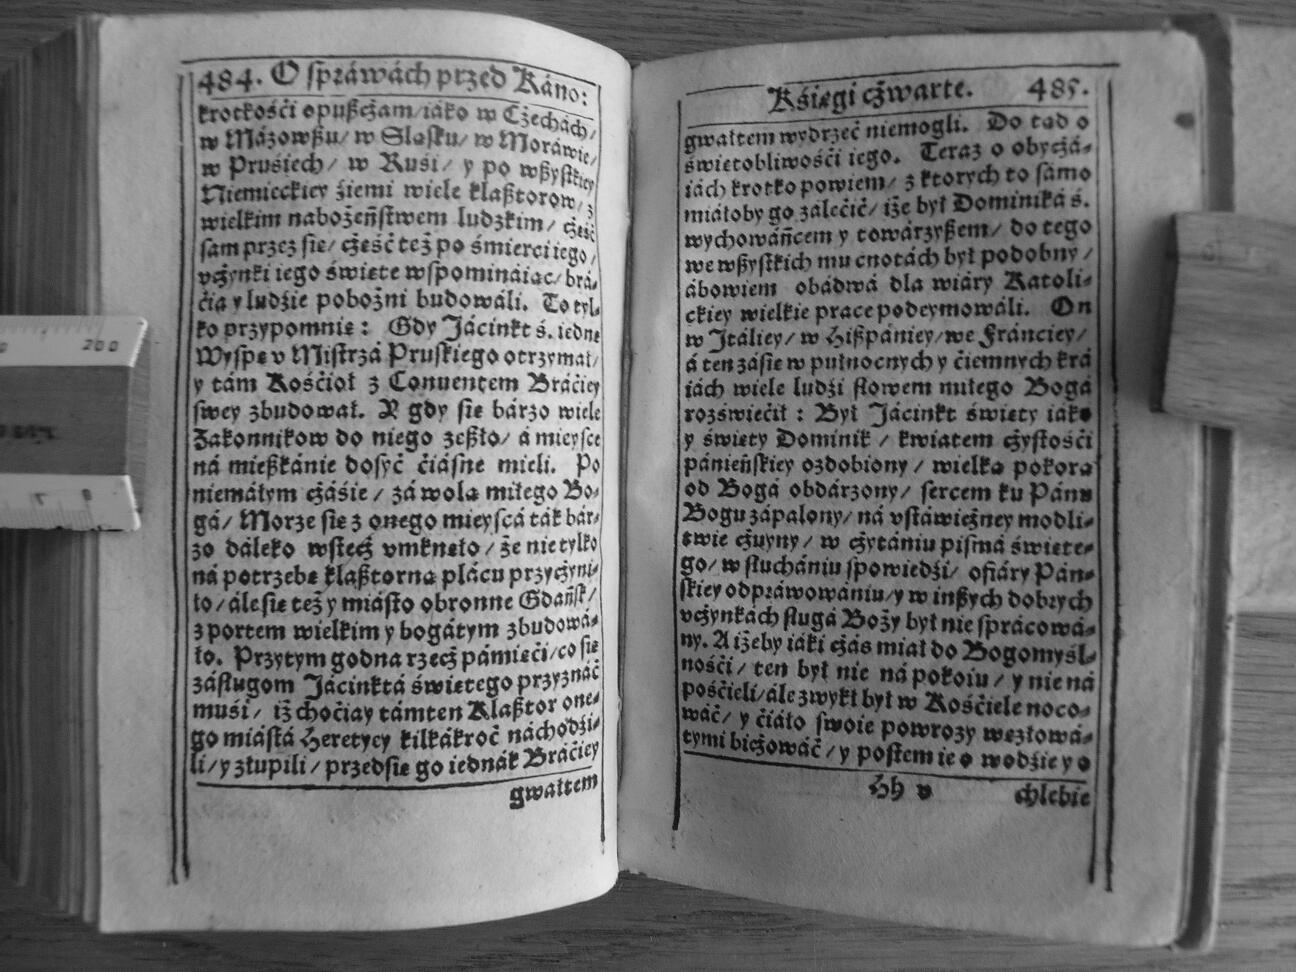 484. O spráwách przed Káno:
krotkośći opußcżam/iáko w Cżechách/
w Mázowßu/ w Sląsku/ w Moráwie/
w Prusiech/ w Ruśi/ y po wßystkiey
Niemieckiey źiemi wiele klaßtorow/ z
wielkim nabożeństwem ludzkim/ cżęść
sam przez się/ cżęść też po śmierci iego/
vcżynki iego święte wspomináiąc/ brá-
ćia y ludźie pobożni budowáli. To tyl-
ko przypomnię: Gdy Jácinkt ś. iednę
Wyspę v Mistrzá Pruskiego otrzymał/
y tám Kośćioł z Conuentem Bráćiey
swey zbudował. A gdy się bárzo wiele
Zakonnikow do niego zeßło/ á mieysce
ná mießkánie dosyć ćiásne mieli. Po
niemáłym cżáśie/ zá wolą miłego Bo-
gá/ Morze się z onego mieyscá ták bár-
zo dáleko wstecż vmknęło/ że nie tylko
ná potrzebę klaßtorną plácu przycżyni-
ło/ ále się też y miásto obronne Gdańsk/
z portem wielkim y bogátym zbudowá-
ło. Przytym godna rzecż pámięći/ co się
zásługom Jácinktá świętego przyznáć
muśi/ iż choćiay támten Klaßtor one-
go miástá Heretycy kilkákroć náchodźi-
li/ y złupili/ przedsię go iednák Bráćiey
gwałtem
Kśięgi cżwarte. 485.
gwałtem wydrzeć niemogli. Do tąd o
świętobliwośći iego. Teraz o obycżá-
iách krotko powiem/ z ktorych to sámo
miáłoby go zálećić/ iże był Dominiká ś.
wychowáńcem y towárzyßem/ do tego
we wßystkich mu cnotách był podobny/
ábowiem obádwá dla wiáry Katoli-
ckiey wielkie prace podeymowáli. On
w Itáliey/ w Hißpániey/ we Fránciey/
á ten záśię w pułnocnych y ćiemnych krá
iách wiele ludźi słowem miłego Bogá
rozświećił: Był Jácinkt święty iáko
y święty Dominik/ kwiatem cżystośći
pánieńskiey ozdobiony/ wielką pokorą
od Bogá obdárzony/ sercem ku Pánu
Bogu zápalony/ ná vstáwicżney modli-
twie cżuyny/ w cżytániu pismá święte-
go/ w słuchániu spowiedźi/ ofiáry Páń-
skiey odpráwowániu/ y w inßych dobrych
vcżynkách sługá Boży był nie sprácowá-
ny. A iżeby iáki cżás miał do Bogomyśl-
nośći/ ten był nie ná pokoiu/ y nie ná
pośćieli/ ále zwykł był w Kośćiele noco-
wáć/ y ćiáło swoie powrozy węzłowá-
tymi bicżowáć/ y postem ie o wodźie y o
Hh v chlebie